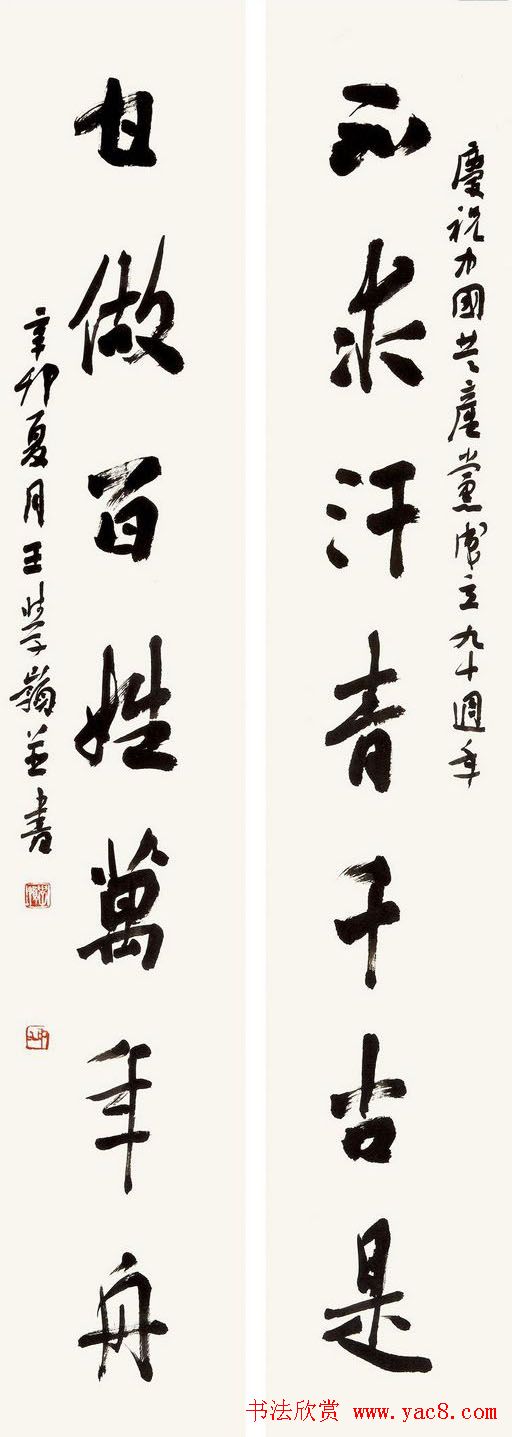 慶祝中國共產黨成立九十週年
不求汗青千古是
甘做百姓萬年舟
辛卯夏月王學嶺并書
书法欣赏 www.yac8.com